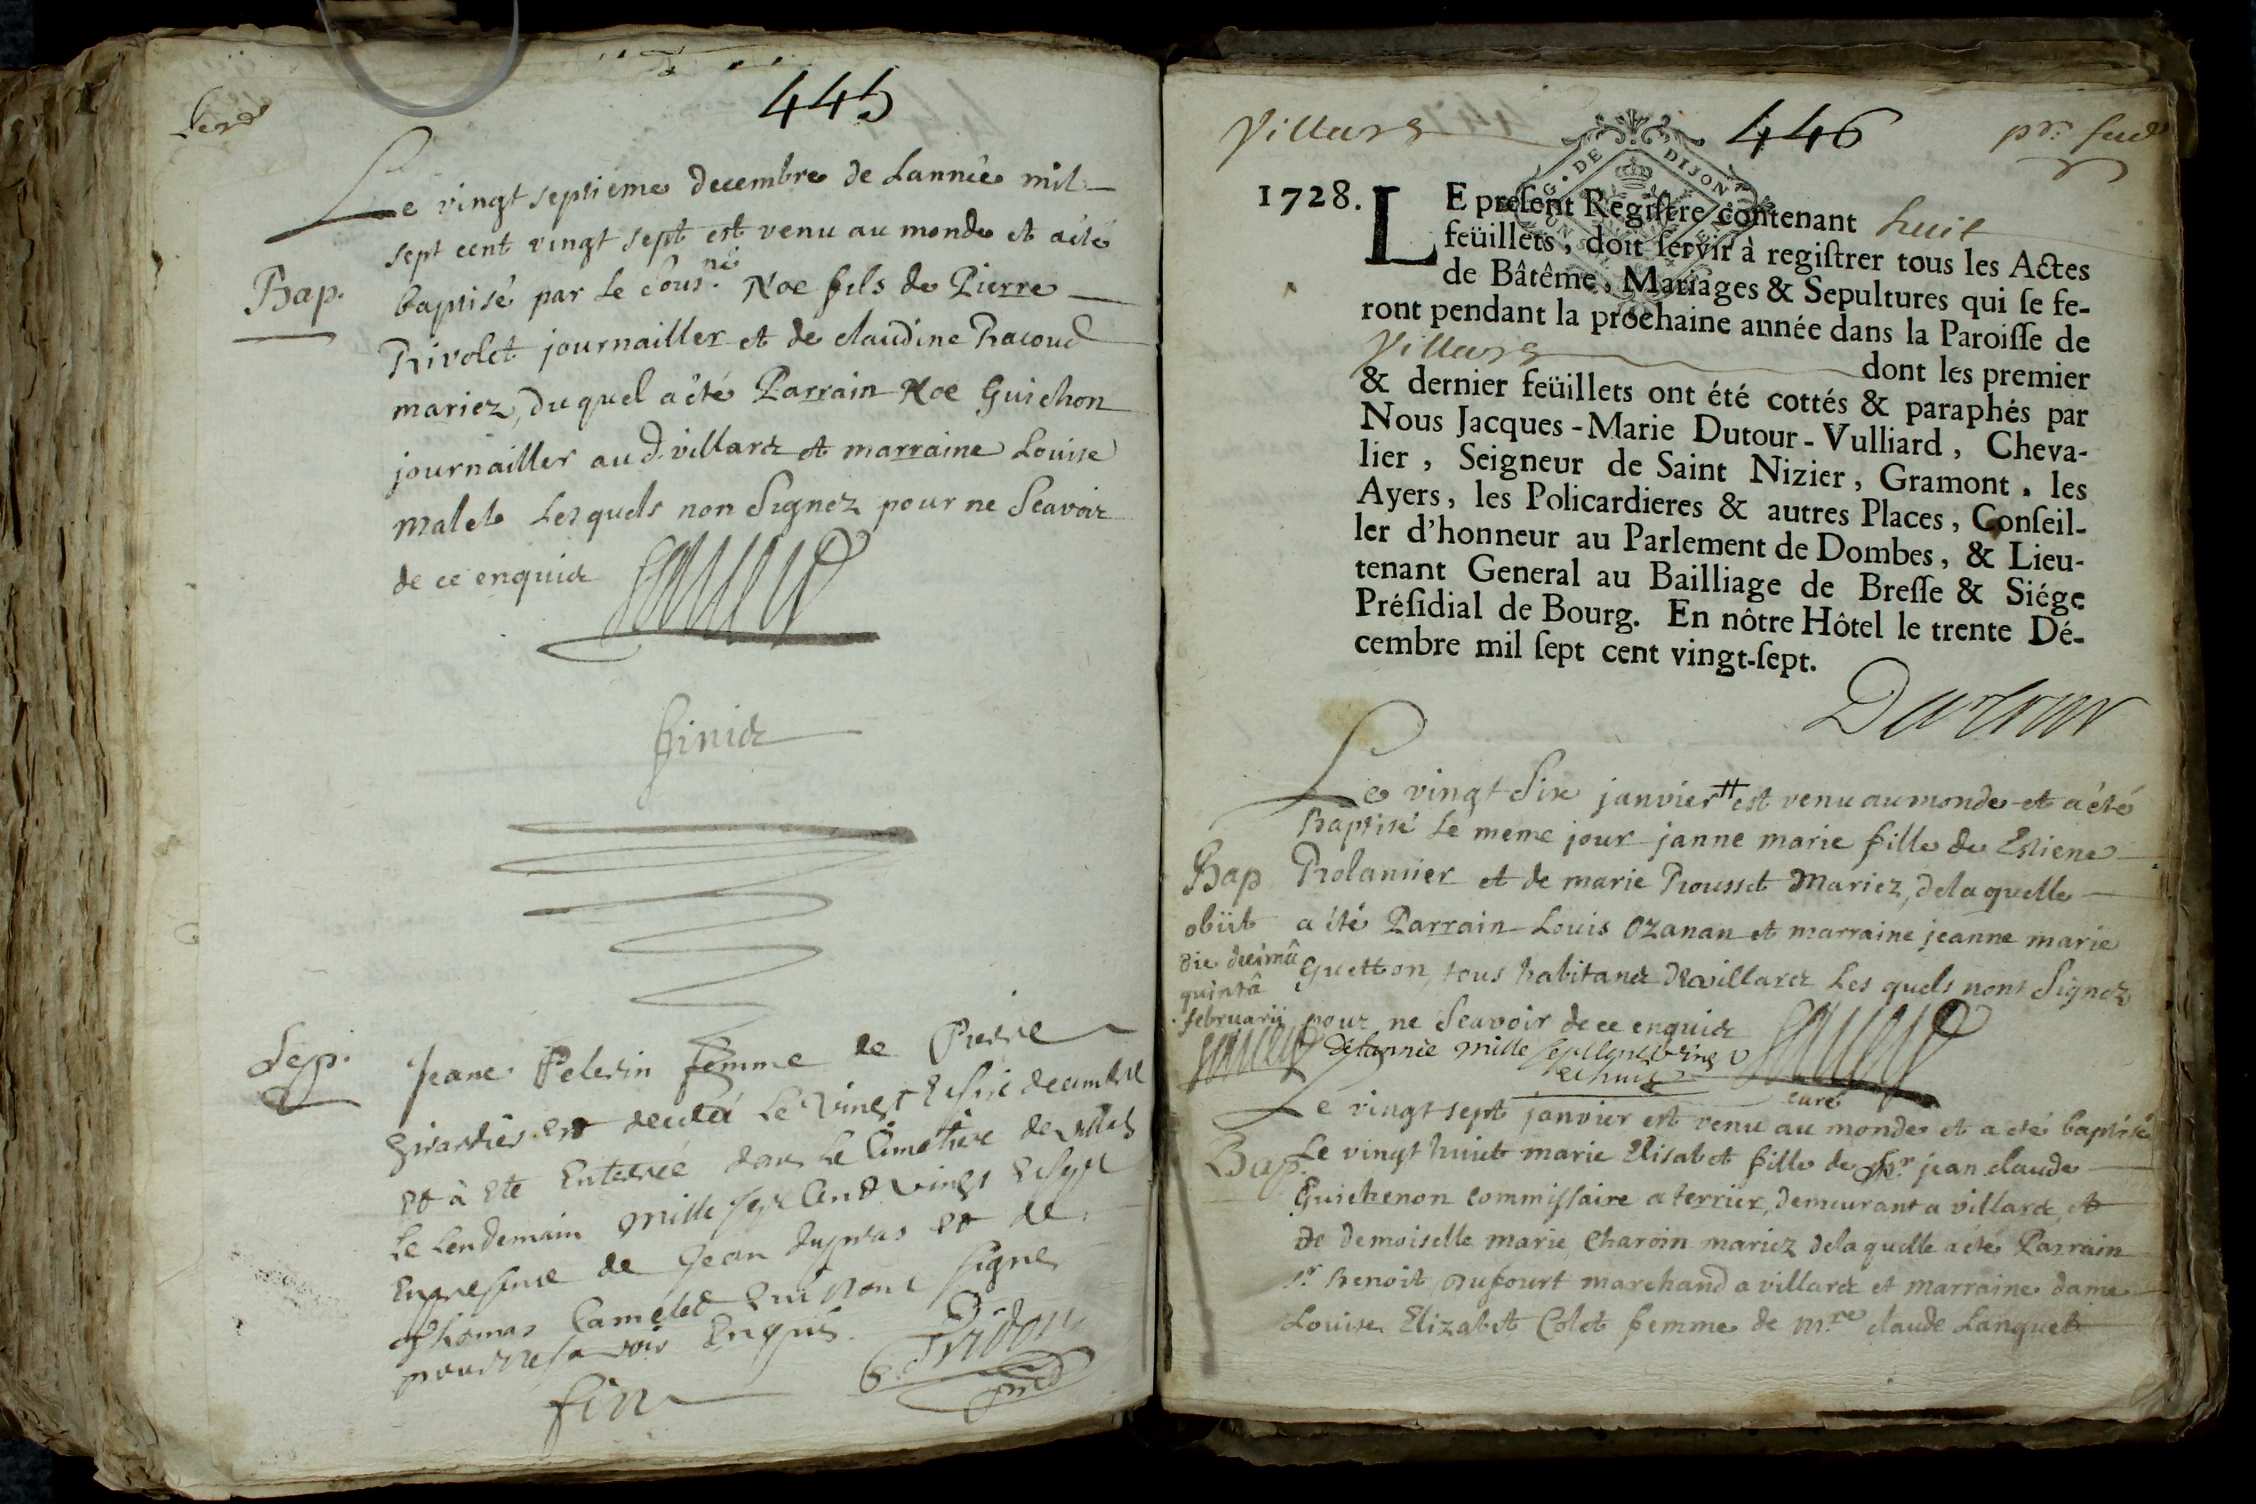 445
Le vingt septieme decembre de Lannée mil
sept cent vingt sept est venu au monde et a été
Bap.
baptisé par le sous.né Noe fils de Pierre
Rivolet journailler et de claudine Racoud
mariez, duquel a été Parrain Noe Guichon
journailler aud. villard et marraine Louise
malet Lesquels non Signez pour ne Scavoir
de ce enquid
finid
Sep.
Jeane Pelerin femme de Pierre
est decedé Le Vingt Esix decembre
Et à Eté Enterreé dans Le Cimetiere de
Le Lendemain mille sept Cent vingt Esept
Enpresence de Jean dupras et de
Thomas Camelet Qui nont signe
pour ne sa voir Enquis
fin
Villars
446
G. DE DIJON
1728. LE preſent Regiſtre contenant huit
feüillets, doit ſervir à regiſtrer tous les Actes
de Bâtême, Mariages & Sepultures qui ſe fe-
ront pendant la prochaine année dans la Paroiſſe de
Villars dont les premier
& dernier feüillets ont été cottés & paraphés par
Nous Jacques-Marie Dutour-Vulliard, Cheva-
lier, Seigneur de Saint Nizier, Gramont, les
Ayers, les Policardieres & autres Places, Conſeil-
ler d'honneur au Parlement de Dombes, & Lieu-
tenant General au Bailliage de Breſſe & Siége
Préſidial de Bourg. En nôtre Hôtel le trente Dé-
cembre mil ſept cent vingt-ſept.
Dutour
Le vingt Six janvier # est venu au monde et a été
Baptisé Le meme jour janne marie fille de Estiene
Bap
Rolannier et de marie Rousset Mariez, de laquelle
obiit
a été Parrain Louis Ozanan et marraine jeanne marie
die decimâ
Guetton, tous habitand de villard Lesquels nont Signez
quintâ
februarii
pour ne Scavoir de ce enquid
# de lannée mille sept cent vingt
et huit
curé
Le vingt sept janvier est venu au monde et a été baptisé
Bap.
Le vingt huict marie Elisabet fille de Sr jean claude
Guichenon commissaire a terrier, demeurant a villard, et
De demoiselle marie Charoin mariez de laquelle a été Parrain
Sr Benoit Dufourt marchand a villard et marraine dame
Louise Elizabet Colet femme de m.re claude Lanquet